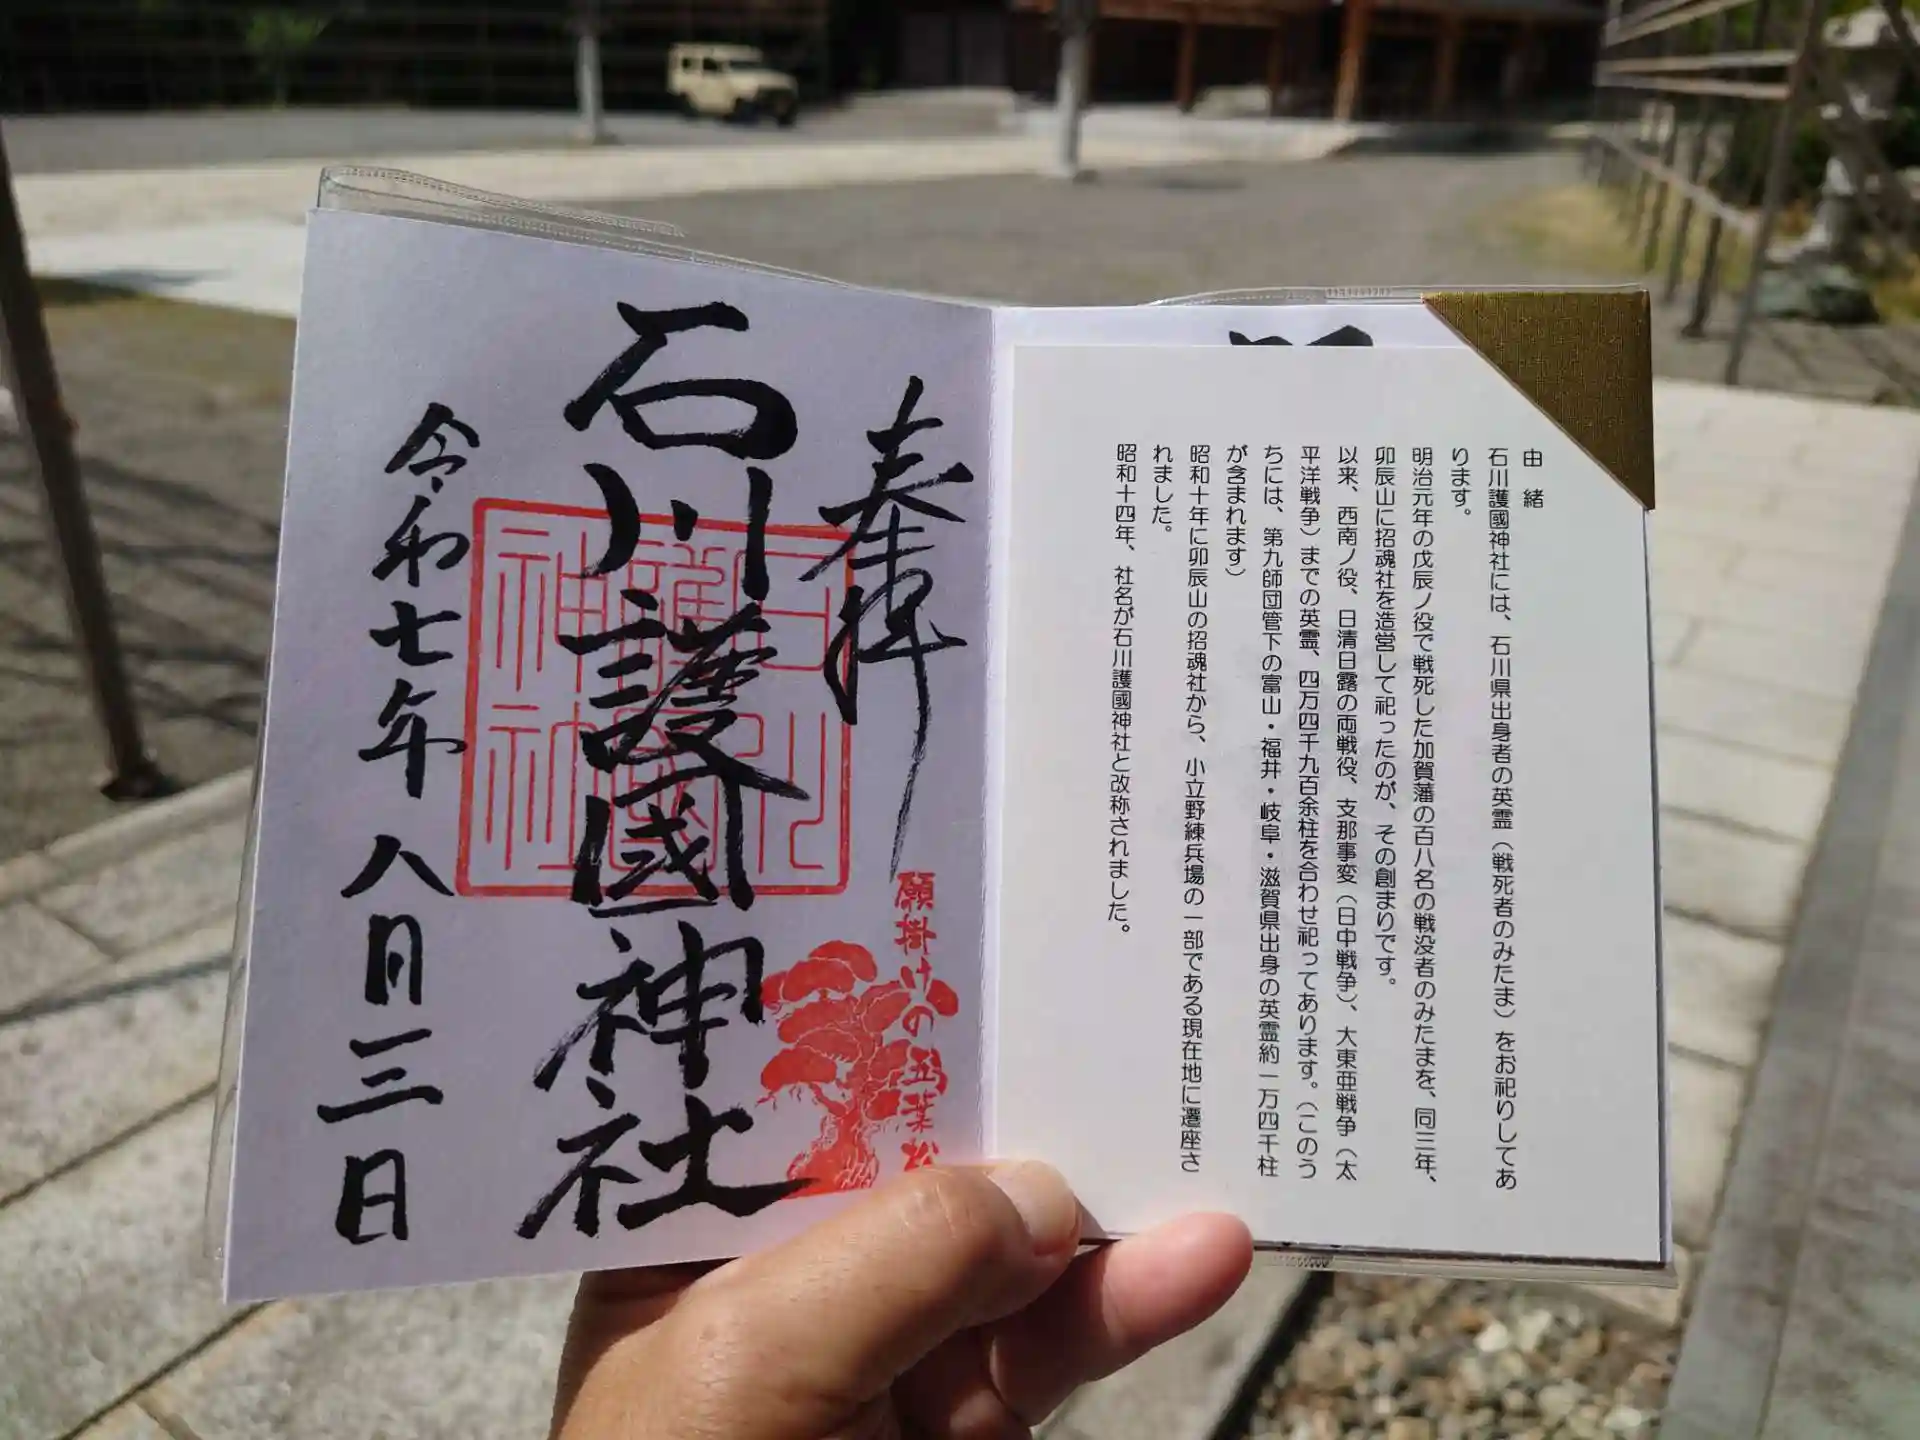 由緒
石川護國神社には、石川県出身者の英霊（戦死者のみたま）をお祀りしてあ
ります。
明治元年の戊辰ノ役で戦死した加賀藩の百八名の戦没者のみたまを、同三年、
卯辰山に招魂社を造営して祀ったのが、その創まりです。
以来、西南ノ役、日清日露の両戦役、支那事変（日中戦争）、大東亜戦争（太
平洋戦争）までの英霊、四万四千九百余柱を合わせ祀ってあります。（このう
ちには、第九師団管下の富山・福井・岐阜・滋賀県出身の英霊約一万四千柱
が含まれます）
昭和十年に卯辰山の招魂社から、小立野練兵場の一部である現在地に遷座さ
れました。
昭和十四年、社名が石川護國神社と改称されました。
奉拝
願掛けの五葉松
石川護國神社
石川護國神社
令和七年八月三日